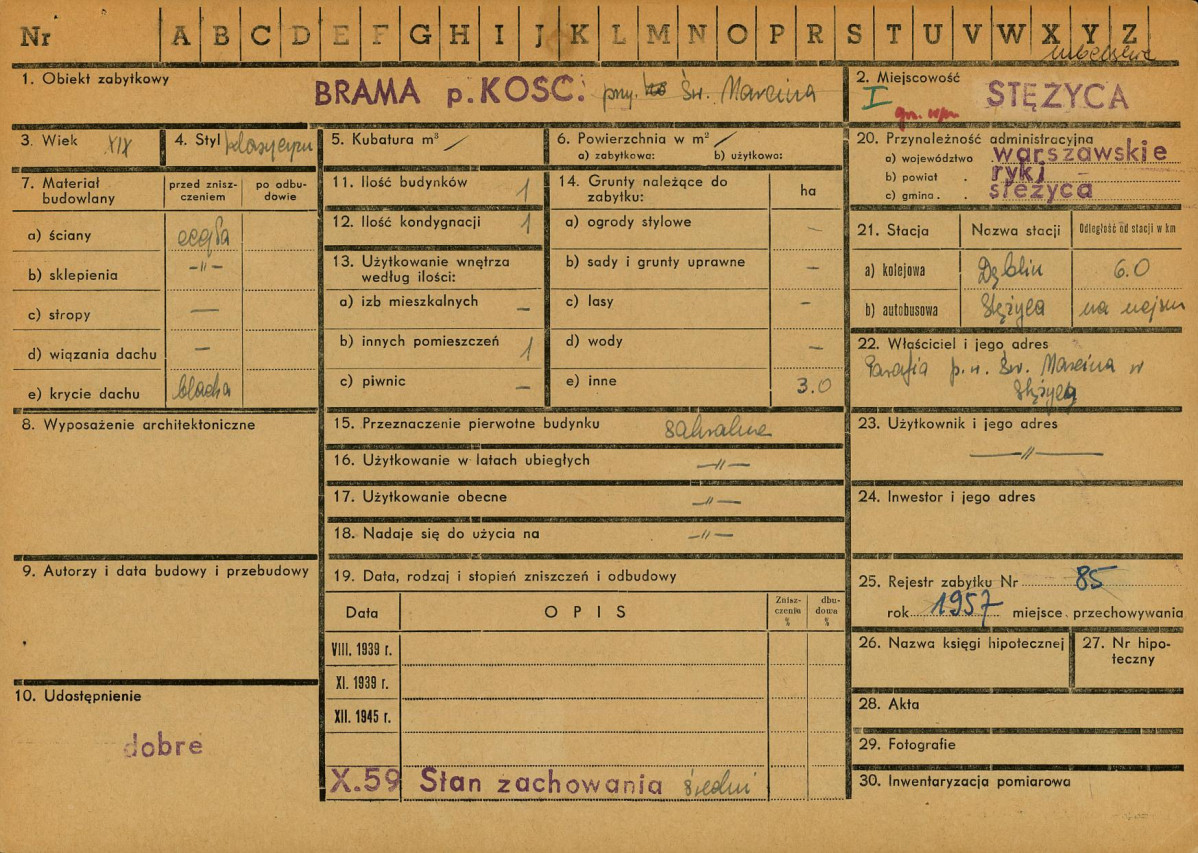 Nr A B C D E F G H I J K L M N O P R S T U V W X Y Z
lubelskie
1. Obiekt zabytkowy
BRAMA p. KOSC. przy Św. Marcina
2. Miejscowość
I STĘŻYCA
3. Wiek XIX
4. Styl klasycyzm
5. Kubatura m³ /
6. Powierzchnia w m² /
a) zabytkowa: b) użytkowa:
7. Materiał budowlany
przed znisz-
czeniem
po odbu-
dowie
a) ściany cegła
b) sklepienia -〃-
c) stropy —
d) wiązania dachu —
e) krycie dachu blacha
8. Wyposażenie architektoniczne
9. Autorzy i data budowy i przebudowy
10. Udostępnienie
dobre
11. Ilość budynków 1
12. Ilość kondygnacji 1
13. Użytkowanie wnętrza
według ilości:
a) izb mieszkalnych —
b) innych pomieszczeń 1
c) piwnic —
14. Grunty należące do
zabytku: ha
a) ogrody stylowe —
b) sady i grunty uprawne —
c) lasy —
d) wody —
e) inne 3.0
15. Przeznaczenie pierwotne budynku sakralne
16. Użytkowanie w latach ubiegłych —〃—
17. Użytkowanie obecne —〃—
18. Nadaje się do użycia na —〃—
19. Data, rodzaj i stopień zniszczeń i odbudowy
Data OPIS
Znisz-
czenie
%
dbu-
dowa
%
VIII. 1939 r.
XI. 1939 r.
XII. 1945 r.
X.59 Stan zachowania średni
20. Przynależność administracyjna
a) województwo warszawskie
b) powiat . ryki
c) gmina . . stężyca
21. Stacja Nazwa stacji Odległość od stacji w km
a) kolejowa Dęblin 6.0
b) autobusowa Stężyca na miejscu
22. Właściciel i jego adres
Parafia p.w. Św. Marcina w
Stężycy
23. Użytkownik i jego adres
—〃—
24. Inwestor i jego adres
25. Rejestr zabytku Nr 85
rok 1957 miejsce przechowywania
26. Nazwa księgi hipotecznej
27. Nr hipo-
teczny
28. Akta
29. Fotografie
30. Inwentaryzacja pomiarowa